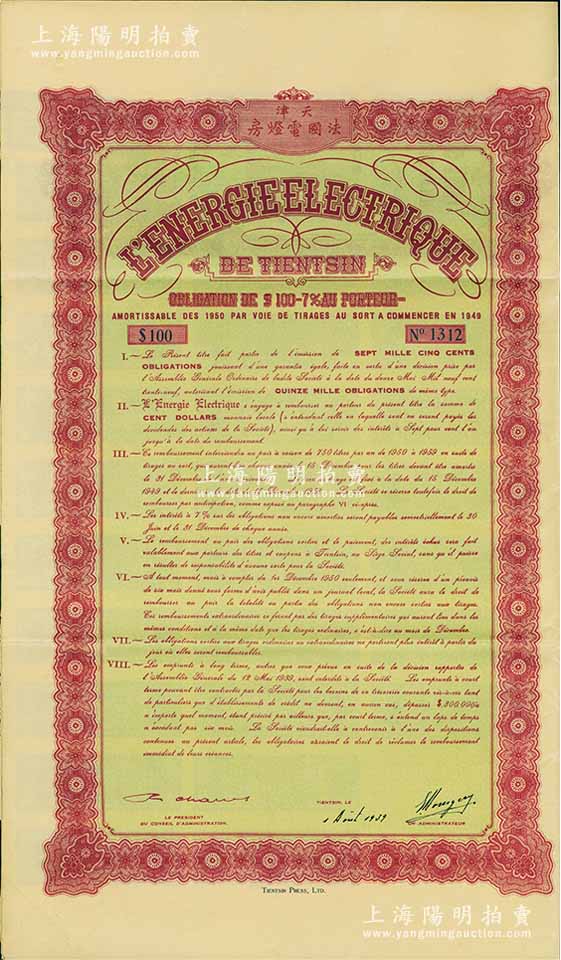 上海陽明拍賣
www.yangmingauction.com
天津
法國電燈房
L'ENERGIE ELECTRIQUE
DE TIENTSIN
OBLIGATION DE $ 100-7% AU PORTEUR
AMORTISSABLE DES 1950 PAR VOIE DE TIRAGES AU SORT A COMMENCER EN 1949
$100
No 1312
I.— Le Présent titre fait partie de l'émission de SEPT MILLE CINQ CENTS
OBLIGATIONS jouissant d'une garantie égale, faite en vertu d'une décision prise par
l'Assemblée Générale Ordinaire de ladite Société à la date du douze Mai Mil neuf cent
trente-neuf, autorisant l'émission de QUINZE MILLE OBLIGATIONS de même type.
II.— L'Energie Electrique s'engage à rembourser au porteur du présent titre la somme de
CENT DOLLARS monnaie locale (s'entendant celle en laquelle sont ou seront payés les
dividendes des actions de la Société), ainsi qu'à lui servir des intérêts à Sept pour cent l'an
jusqu'à la date du remboursement.
III.— Ce remboursement interviendra au pair à raison de 750 titres par an de 1950 à 1959 en suite de
tirages au sort, qui auront lieu 15 Décembre pour les titres devant être amortis
le 31 Décembre tirage fixé à la date du 15 Décembre
1949 et le dernier Société se réserve toutefois le droit de
rembourser par anticipation, comme exposé au paragraphe VI ci-après.
IV.— Les intérêts à 7% sur des obligations non encore amorties seront payables semestriellement le 30
Juin et le 31 Décembre de chaque année.
V.— Le remboursement au pair des obligations sorties et le paiement, des intérêts échus sera fait
valablement aux porteurs des titres et coupons à Tientsin, au Siège Social, sans qu'il puisse
en résulter de responsabilité d'aucune sorte pour la Société.
VI.— A tout moment, mais à compter du 1er Décembre 1950 seulement, et sous réserve d'un préavis
de six mois donné sous forme d'avis publié dans un journal local, la Société aura le droit de
rembourser au pair la totalité ou partie des obligations non encore sorties aux tirages.
Ces remboursements extraordinaires se feront par des tirages supplémentaires qui auront lieu dans les
mêmes conditions et à la même date que les tirages ordinaires, c'est-à-dire au mois de Décembre.
VII.— Les obligations sorties aux tirages ordinaires ou extraordinaires ne porteront plus intérêt à partir du
jour où elles seront remboursables.
VIII.— Les emprunts à long terme, autres que ceux prévus en suite de la décision rapportée de
l'Assemblée Générale du 12 Mai 1939, sont interdits à la Société. Les emprunts à court
terme pouvant être contractés par la Société pour les besoins de sa trésorerie courante vis-à-vis tant
de particuliers que d'établissements de crédit ne devront, en aucun cas, dépasser $,300.000 à
n'importe quel moment, étant précisé par ailleurs que, par court terme, s'entend un laps de temps
n'excédant pas six mois. La Société viendrait-elle à contrevenir à l'une des dispositions
contenues au présent article, les obligataires auraient le droit de réclamer le remboursement
immédiat de leurs créances.
TIENTSIN, LE
1 Août 1939
LE PRESIDENT
DU CONSEIL D'ADMINISTRATION.
UN ADMINISTRATEUR
TIENTSIN PRESS, LTD.
上海陽明拍賣
www.yangmingauction.com